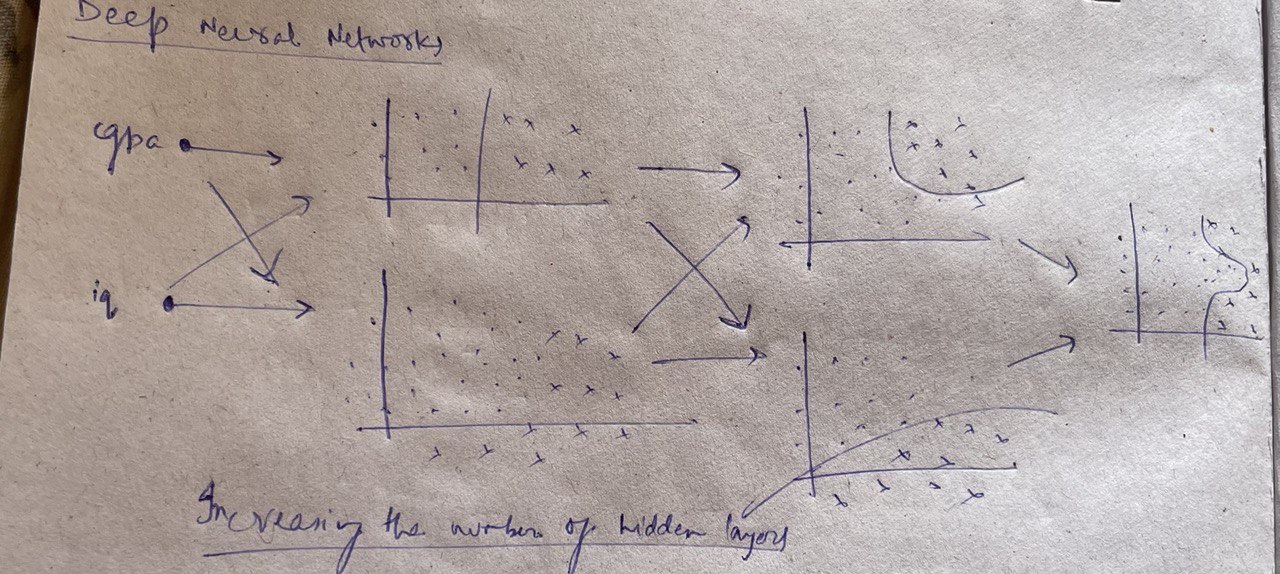 Deep Neural Networks
cgpa
iq
Increasing the number of hidden layers